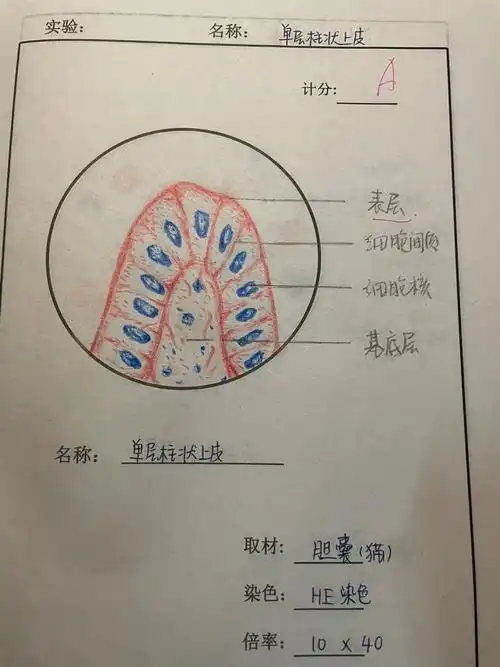 实验: 名称: 单层柱状上皮
计分: A
表层.
细胞间质
细胞核
基底层
名称: 单层柱状上皮
取材: 胆囊(猫)
染色: HE染色
倍率: 10 x 40